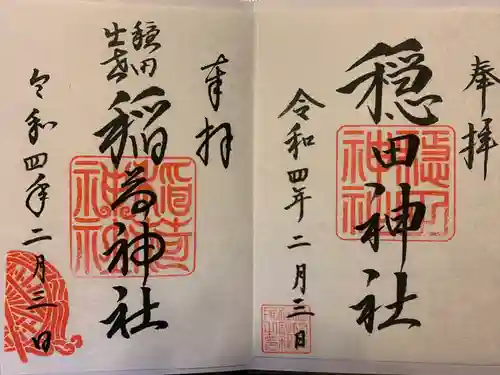 奉拝
穏田神社
令和四年二月三日
奉拝
穏田
出世
稲荷神社
令和四年二月三日